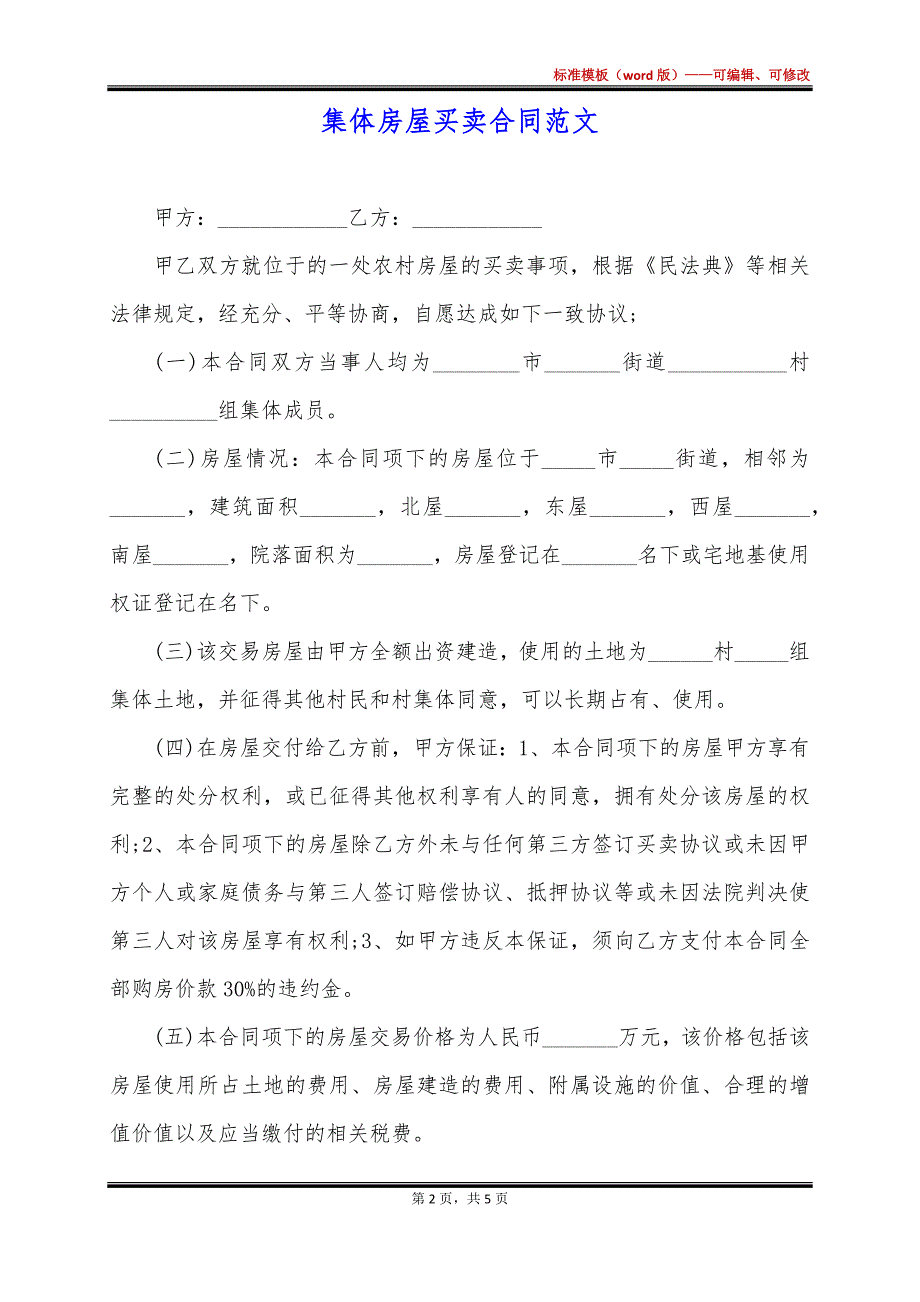 标准模板（word 版）——可编辑、可修改
集体房屋买卖合同范文
甲方：____________乙方：____________
甲乙双方就位于的一处农村房屋的买卖事项，根据《民法典》等相关
法律规定，经充分、平等协商，自愿达成如下一致协议;
(一)本合同双方当事人均为________市_______街道___________村
__________组集体成员。
(二)房屋情况：本合同项下的房屋位于_____市_____街道，相邻为
_______，建筑面积_______，北屋_______，东屋_______，西屋_______，
南屋_______，院落面积为_______，房屋登记在_______名下或宅地基使用
权证登记在名下。
(三)该交易房屋由甲方全额出资建造，使用的土地为______村_____组
集体土地，并征得其他村民和村集体同意，可以长期占有、使用。
(四)在房屋交付给乙方前，甲方保证：1、本合同项下的房屋甲方享有
完整的处分权利，或已征得其他权利享有人的同意，拥有处分该房屋的权
利;2、本合同项下的房屋除乙方外未与任何第三方签订买卖协议或未因甲
方个人或家庭债务与第三人签订赔偿协议、抵押协议等或未因法院判决使
第三人对该房屋享有权利;3、如甲方违反本保证，须向乙方支付本合同全
部购房价款 30%的违约金。
(五)本合同项下的房屋交易价格为人民币_______万元，该价格包括该
房屋使用所占土地的费用、房屋建造的费用、附属设施的价值、合理的增
值价值以及应当缴付的相关税费。
第 2 页，共 5 页